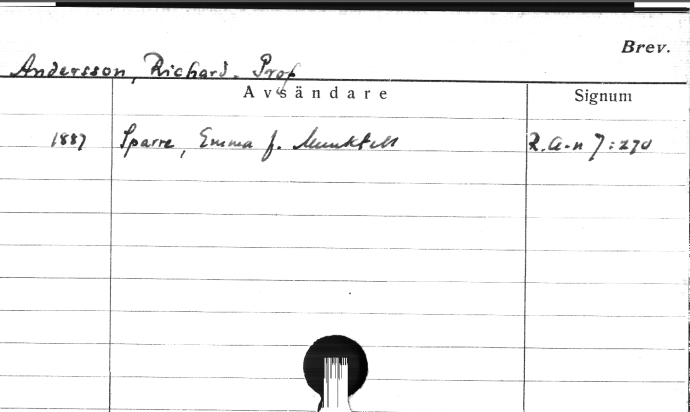 Brev.
Andersson, Richard. Prof
Avsändare Signum
1887 Sparre, Emma f. Munktell R.A-n 7:270